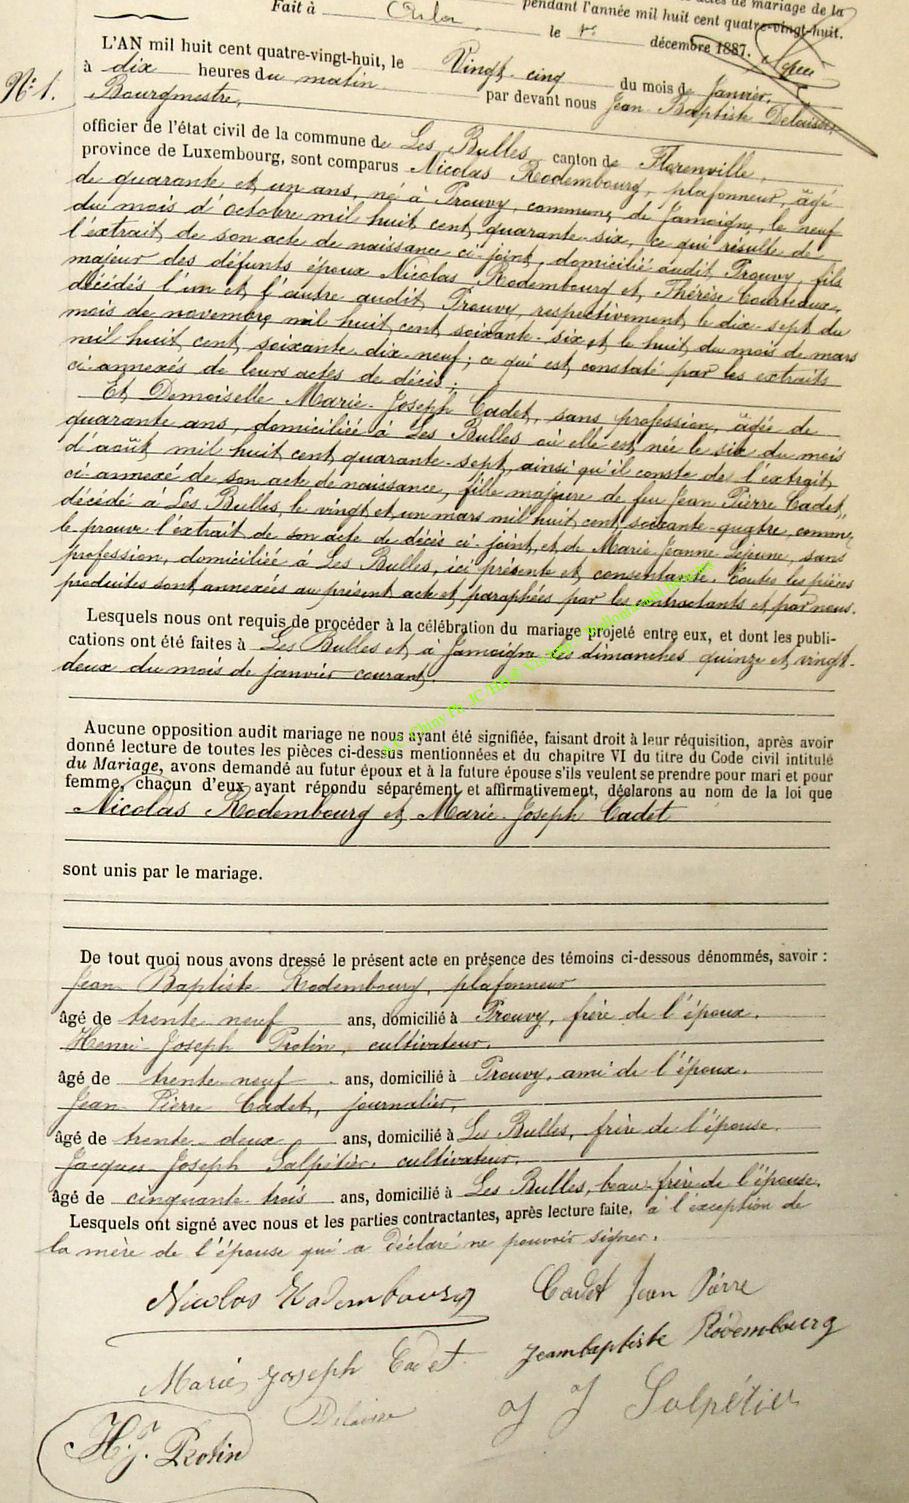 actes de mariage de la
Fait à Arlon pendant l'année mil huit cent quatre-vingt-huit.
le 1er décembre 1887.
N° 1.
L'AN mil huit cent quatre-vingt-huit, le Vingt-cinq du mois de Janvier,
à dix heures du matin par devant nous Jean Baptiste Delaisse,
Bourgmestre,
officier de l'état civil de la commune de Les Bulles canton de Florenville,
province de Luxembourg, sont comparus Nicolas Rodembourg, plafonneur, âgé
de quarante et un ans, né à Prouvy, commune de Jamoigne, le neuf
du mois d'octobre mil huit cent quarante-six, ce qui résulte de
l'extrait de son acte de naissance ci-joint, domicilié audit Prouvy, fils
majeur des défunts époux Nicolas Rodembourg et Thérèse Courteaux,
décédés l'un et l'autre audit Prouvy, respectivement le dix-sept du
mois de novembre mil huit cent soixante-six et le huit du mois de mars
mil huit cent soixante dix-neuf; ce qui est constaté par les extraits
ci-annexés de leurs actes de décès;
Et Demoiselle Marie-Joseph Cadet, sans profession, âgée de
quarante ans, domiciliée à Les Bulles où elle est née le six du mois
d'août mil huit cent quarante-sept, ainsi qu'il conste de l'extrait
ci-annexé de son acte de naissance, fille majeure de feu Jean Pierre Cadet,
décédé à Les Bulles, le vingt et un mars mil huit cent soixante-quatre, comme
le prouve l'extrait de son acte de décès ci-joint, et de Marie-Jeanne Lejeune, sans
profession, domiciliée à Les Bulles, ici présente et consentante. Toutes les pièces
produites sont annexées au présent acte et paraphées par les contractants et par nous.
Lesquels nous ont requis de procéder à la célébration du mariage projeté entre eux, et dont les publi-
cations ont été faites à Les Bulles et à Jamoigne les dimanches quinze et vingt-
deux du mois de janvier courant.
Aucune opposition audit mariage ne nous ayant été signifiée, faisant droit à leur réquisition, après avoir
donné lecture de toutes les pièces ci-dessus mentionnées et du chapitre VI du titre du Code civil intitulé
du Mariage, avons demandé au futur époux et à la future épouse s'ils veulent se prendre pour mari et pour
femme, chacun d'eux ayant répondu séparément et affirmativement, déclarons au nom de la loi que
Nicolas Rodembourg et Marie-Joseph Cadet
sont unis par le mariage.
De tout quoi nous avons dressé le présent acte en présence des témoins ci-dessous dénommés, savoir :
Jean Baptiste Rodembourg, plafonneur
âgé de trente-neuf ans, domicilié à Prouvy, frère de l'époux.
Henri Joseph Protin, cultivateur,
âgé de trente-neuf ans, domicilié à Prouvy, ami de l'époux.
Jean Pierre Cadet, journalier,
âgé de trente-deux ans, domicilié à Les Bulles, frère de l'épouse.
Jacques Joseph Salpétier, cultivateur,
âgé de cinquante-trois ans, domicilié à Les Bulles, beau-frère de l'épouse.
Lesquels ont signé avec nous et les parties contractantes, après lecture faite, à l'exception de
la mère de l'épouse qui a déclaré ne pouvoir signer.
Nicolas Rodembourg Cadet Jean Pierre
Marie Joseph Cadet Jeanbaptiste Rodembourg
Delaisse J J Salpétier
H.J. Protin